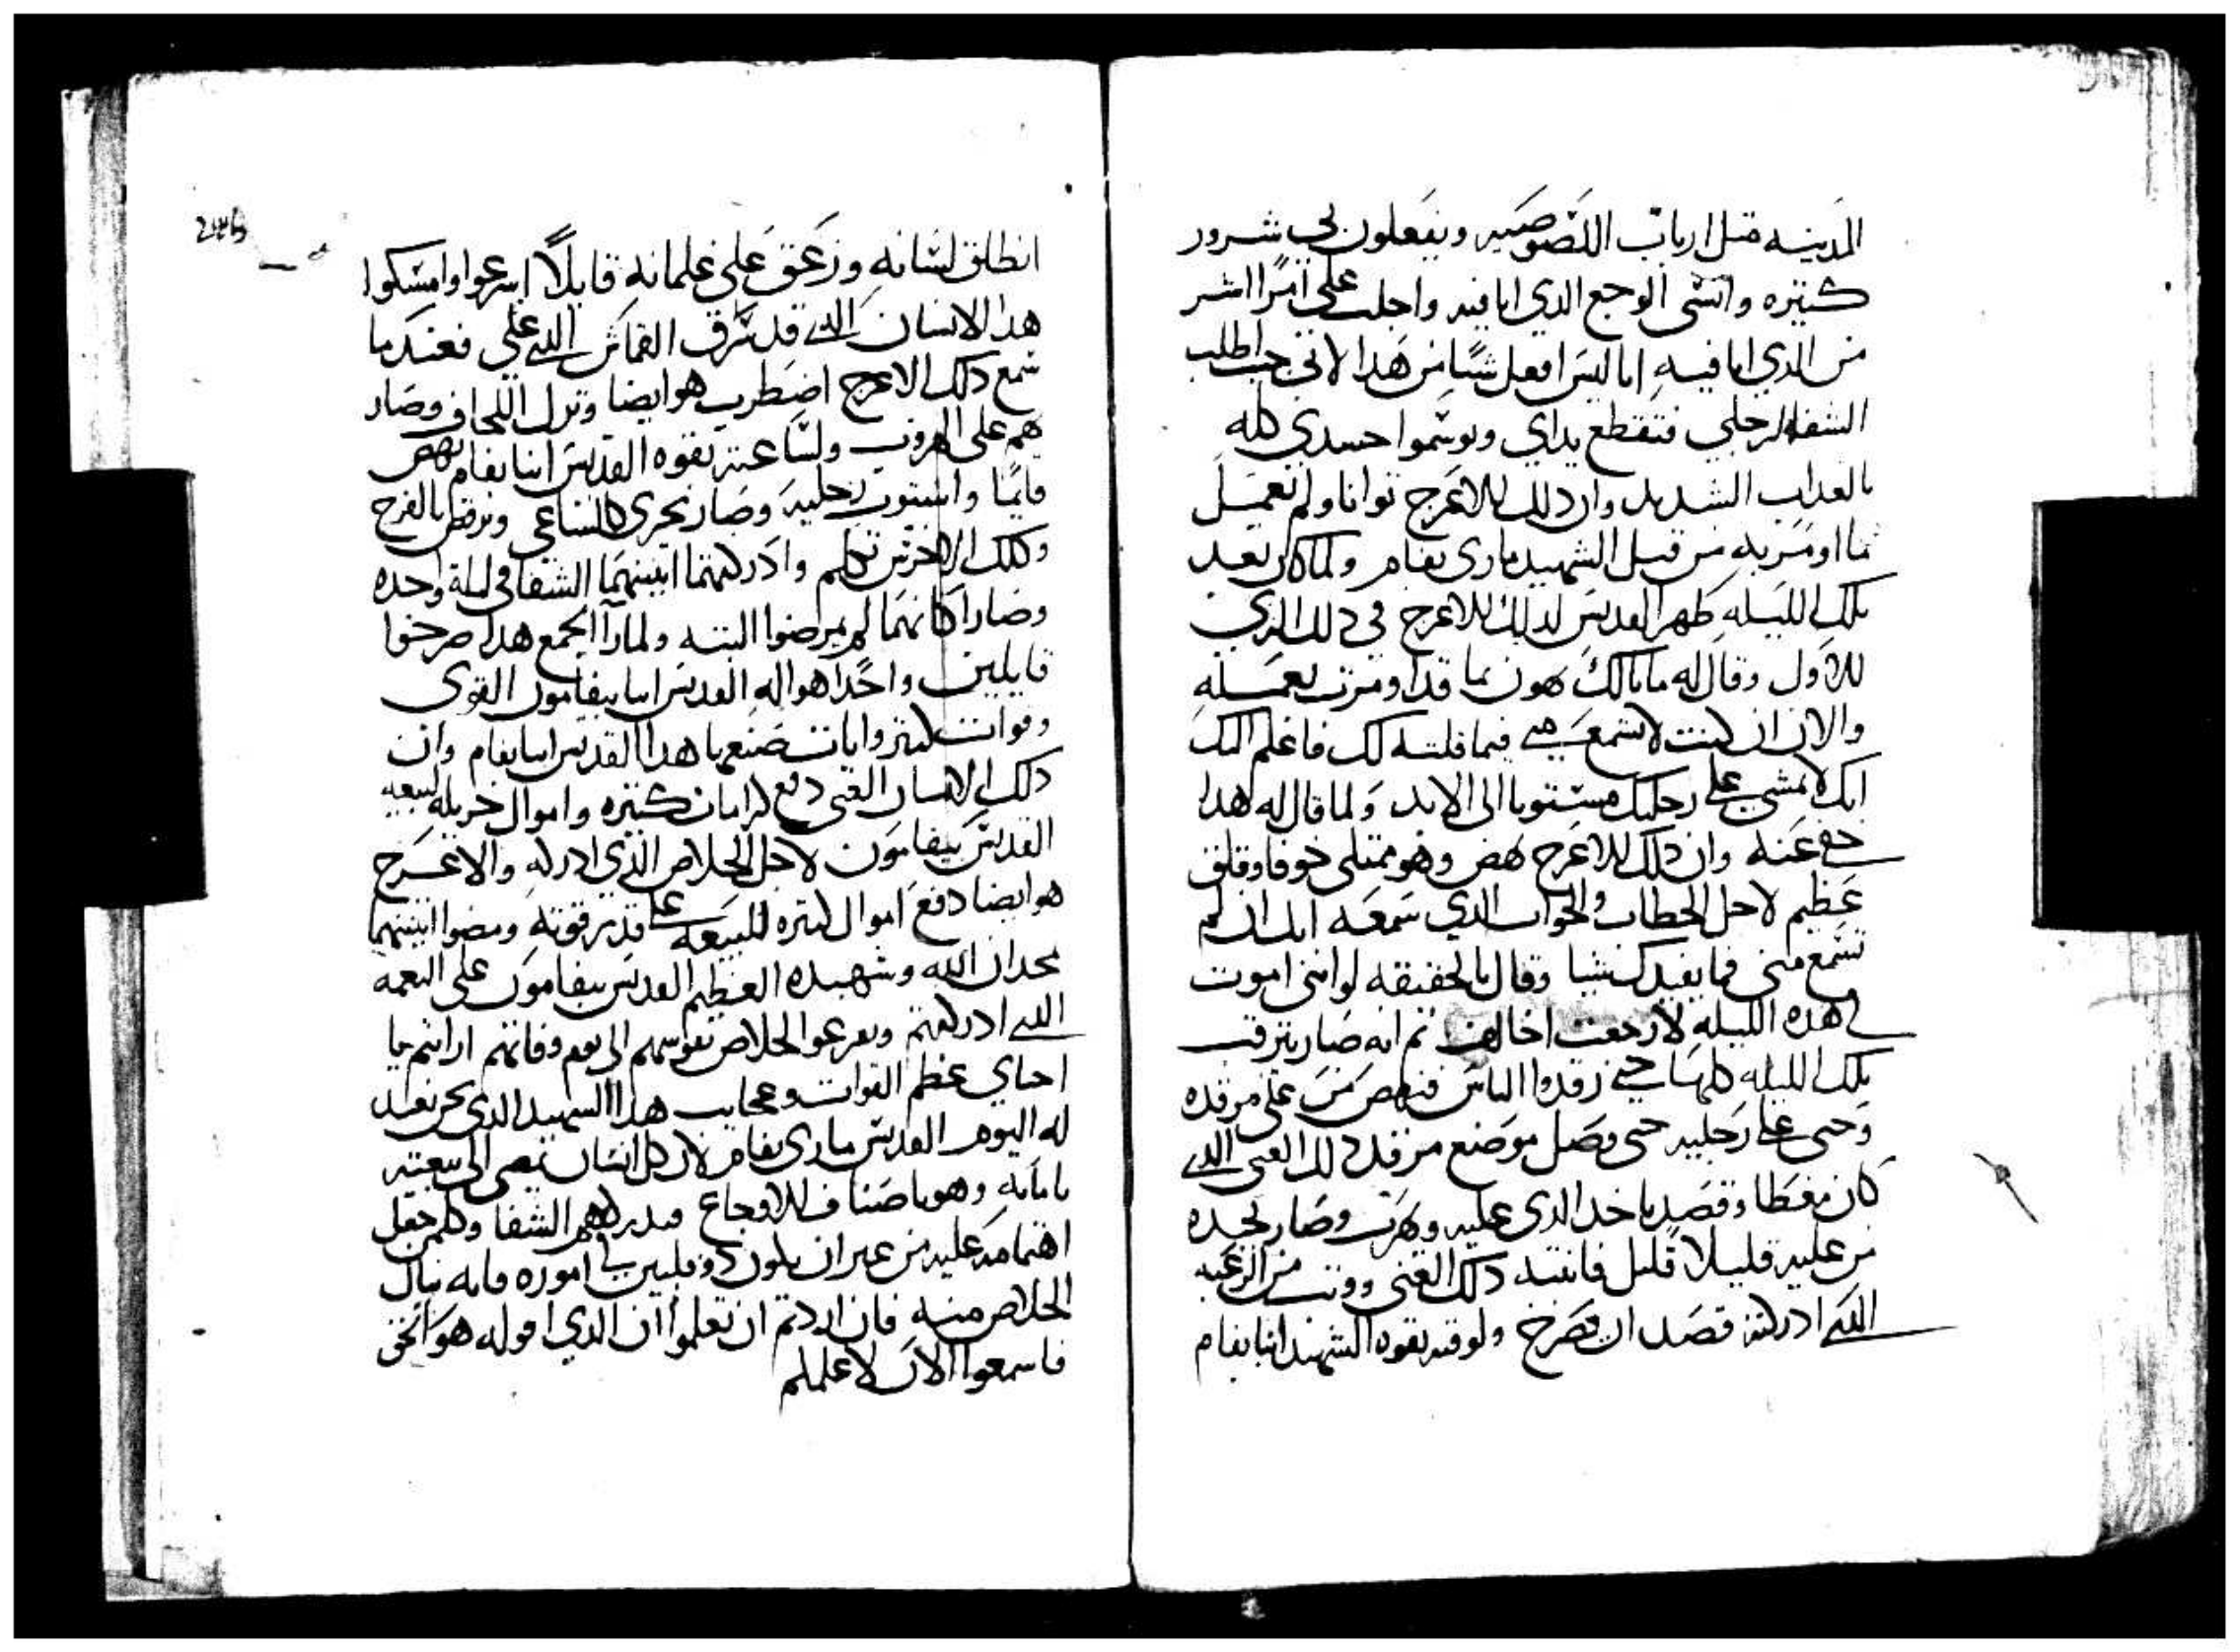 المدينه مثل ارباب اللصوصيه ويفعلون بي شرور
كتيره وانسى الوجع الدي انا فيه واجلب علي امرا اشر
من الدي انا فيه انا ليس افعل شيا من هدا لانى جيت اطلب
الشفا لرجلي فتقطع يداي ويوسموا جسدي كله
بالعداب الشديد وان دلك الاعرج توانا ولم يعمل
بما اومر به من قبل الشهيد ماري بفام ولما كان بعد
تلك الليله ظهر القديس لدلك الاعرج في دلك الزي
الاول وقال له ما بالك تهون بما قد اومرت بعمله
والان ان كنت لا تسمع مني فيما قلته لك فاعلم انك
انك لا تمشي علي رجليك مستويا الى الابد ولما قال له هدا
خفي عنه وان دلك الاعرج نهض وهو ممتلى خوفا وقلق
عظيم لاجل الخطاب والجواب الدي سمعه انك ان لم
تسمع منى فما يفيدك شيا وقال بالحقيقه لو اننى اموت
في هده الليله لا رجعت اخالف تم انه صار يترقب
تلك الليله كلها حتى رقدوا الناس فنهض من على مرقده
وحبى على رجليه حتى وصل موضع مرقد دلك الغنى الدى
كان مغطا وقصد ياخد الدى عليه ويهرب وصار يجبده
من عليه قليلا قليل فانتبه دلك الغنى ووتب من الرعبه
التى ادركته قصد ان يصرخ ولوقته بقوه الشهيد انبا بفام
246
انطلق لسانه وزعق على غلمانه قايلا اسرعوا وامسكوا
هدا الانسان الدى قد سرق القماش الدى علي فعندما
سمع دلك الاعرج اضطرب هو ايضا وترك اللحاف وصار
هم على الهروب ولساعته بقوه القديس انبا بفام نهض
قايما واستوت رجليه وصار يجرى كالساعي ويرقص بالفرح
وكدلك الاخرس تكلم وادركتهما اتنينهما الشفا في ليلة واحده
وصارا كانهما لم يمرضوا البته ولما راا الجمع هدا صرخوا
قايلين واحدا هو اله القديس انبا بيفامون القوى
وقوات كتير وايات صنعها هدا القديس انبا بفام وان
دلك الانسان الغني دفع كرامات كتيره واموال جزيله لبيعة
القديس بيفامون لاجل الخلاص الذي ادركه والاعرج
هو ايضا دفع اموال كتيره للبيعه على قدر قوته ومضوا اتنينهما
يمجدان الله وشهيده العظيم القديس بيفامون على النعمه
التى ادركتهم وتفرغوا لخلاص نفوسهم الى يوم وفاتهم ارايتم يا
احباي عظم القوات وعجايب هدا الشهيد الدي نحن نعيد
له اليوم القديس ماري بفام لان كل انسان يمضى الى بيعته
بامانه وهو باصناف الاوجاع فيدركهم الشفا وكلمن جعل
اهتمامه عليه من غير ان يكون دو قلبين في اموره فانه ينال
الخلاص منه فان اردتم ان تعلموا ان الدي اقوله هو الحق
فاسمعوا الان لاعلمكم